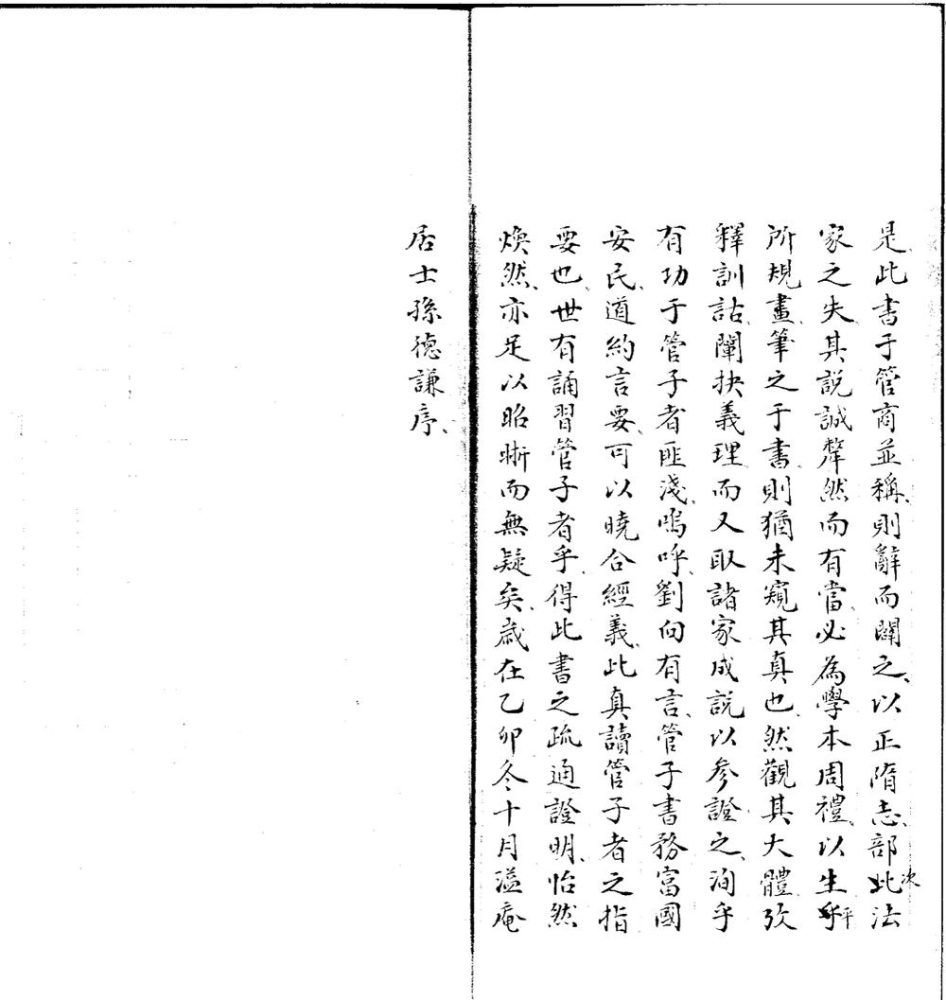 是此書于管商並稱、則辭而闢之、以正隋志、部此次法
家之失其說誠犖然而有當、必為學本周禮、以生乎平
所規畫筆之于書則猶未窺其真也、然觀其大體攷
釋訓詁、闡抉義理、而又取諸家成說以參證之、洵乎
有功于管子者匪淺、嗚呼、劉向有言、管子書務富國
安民、道約言要、可以曉合經義、此真讀管子者之指
要也、世有誦習管子者乎、得此書之疏通證明、怡然
煥然、亦足以昭晰而無疑矣、歲在乙卯冬十月溢庵
居士孫德謙序、